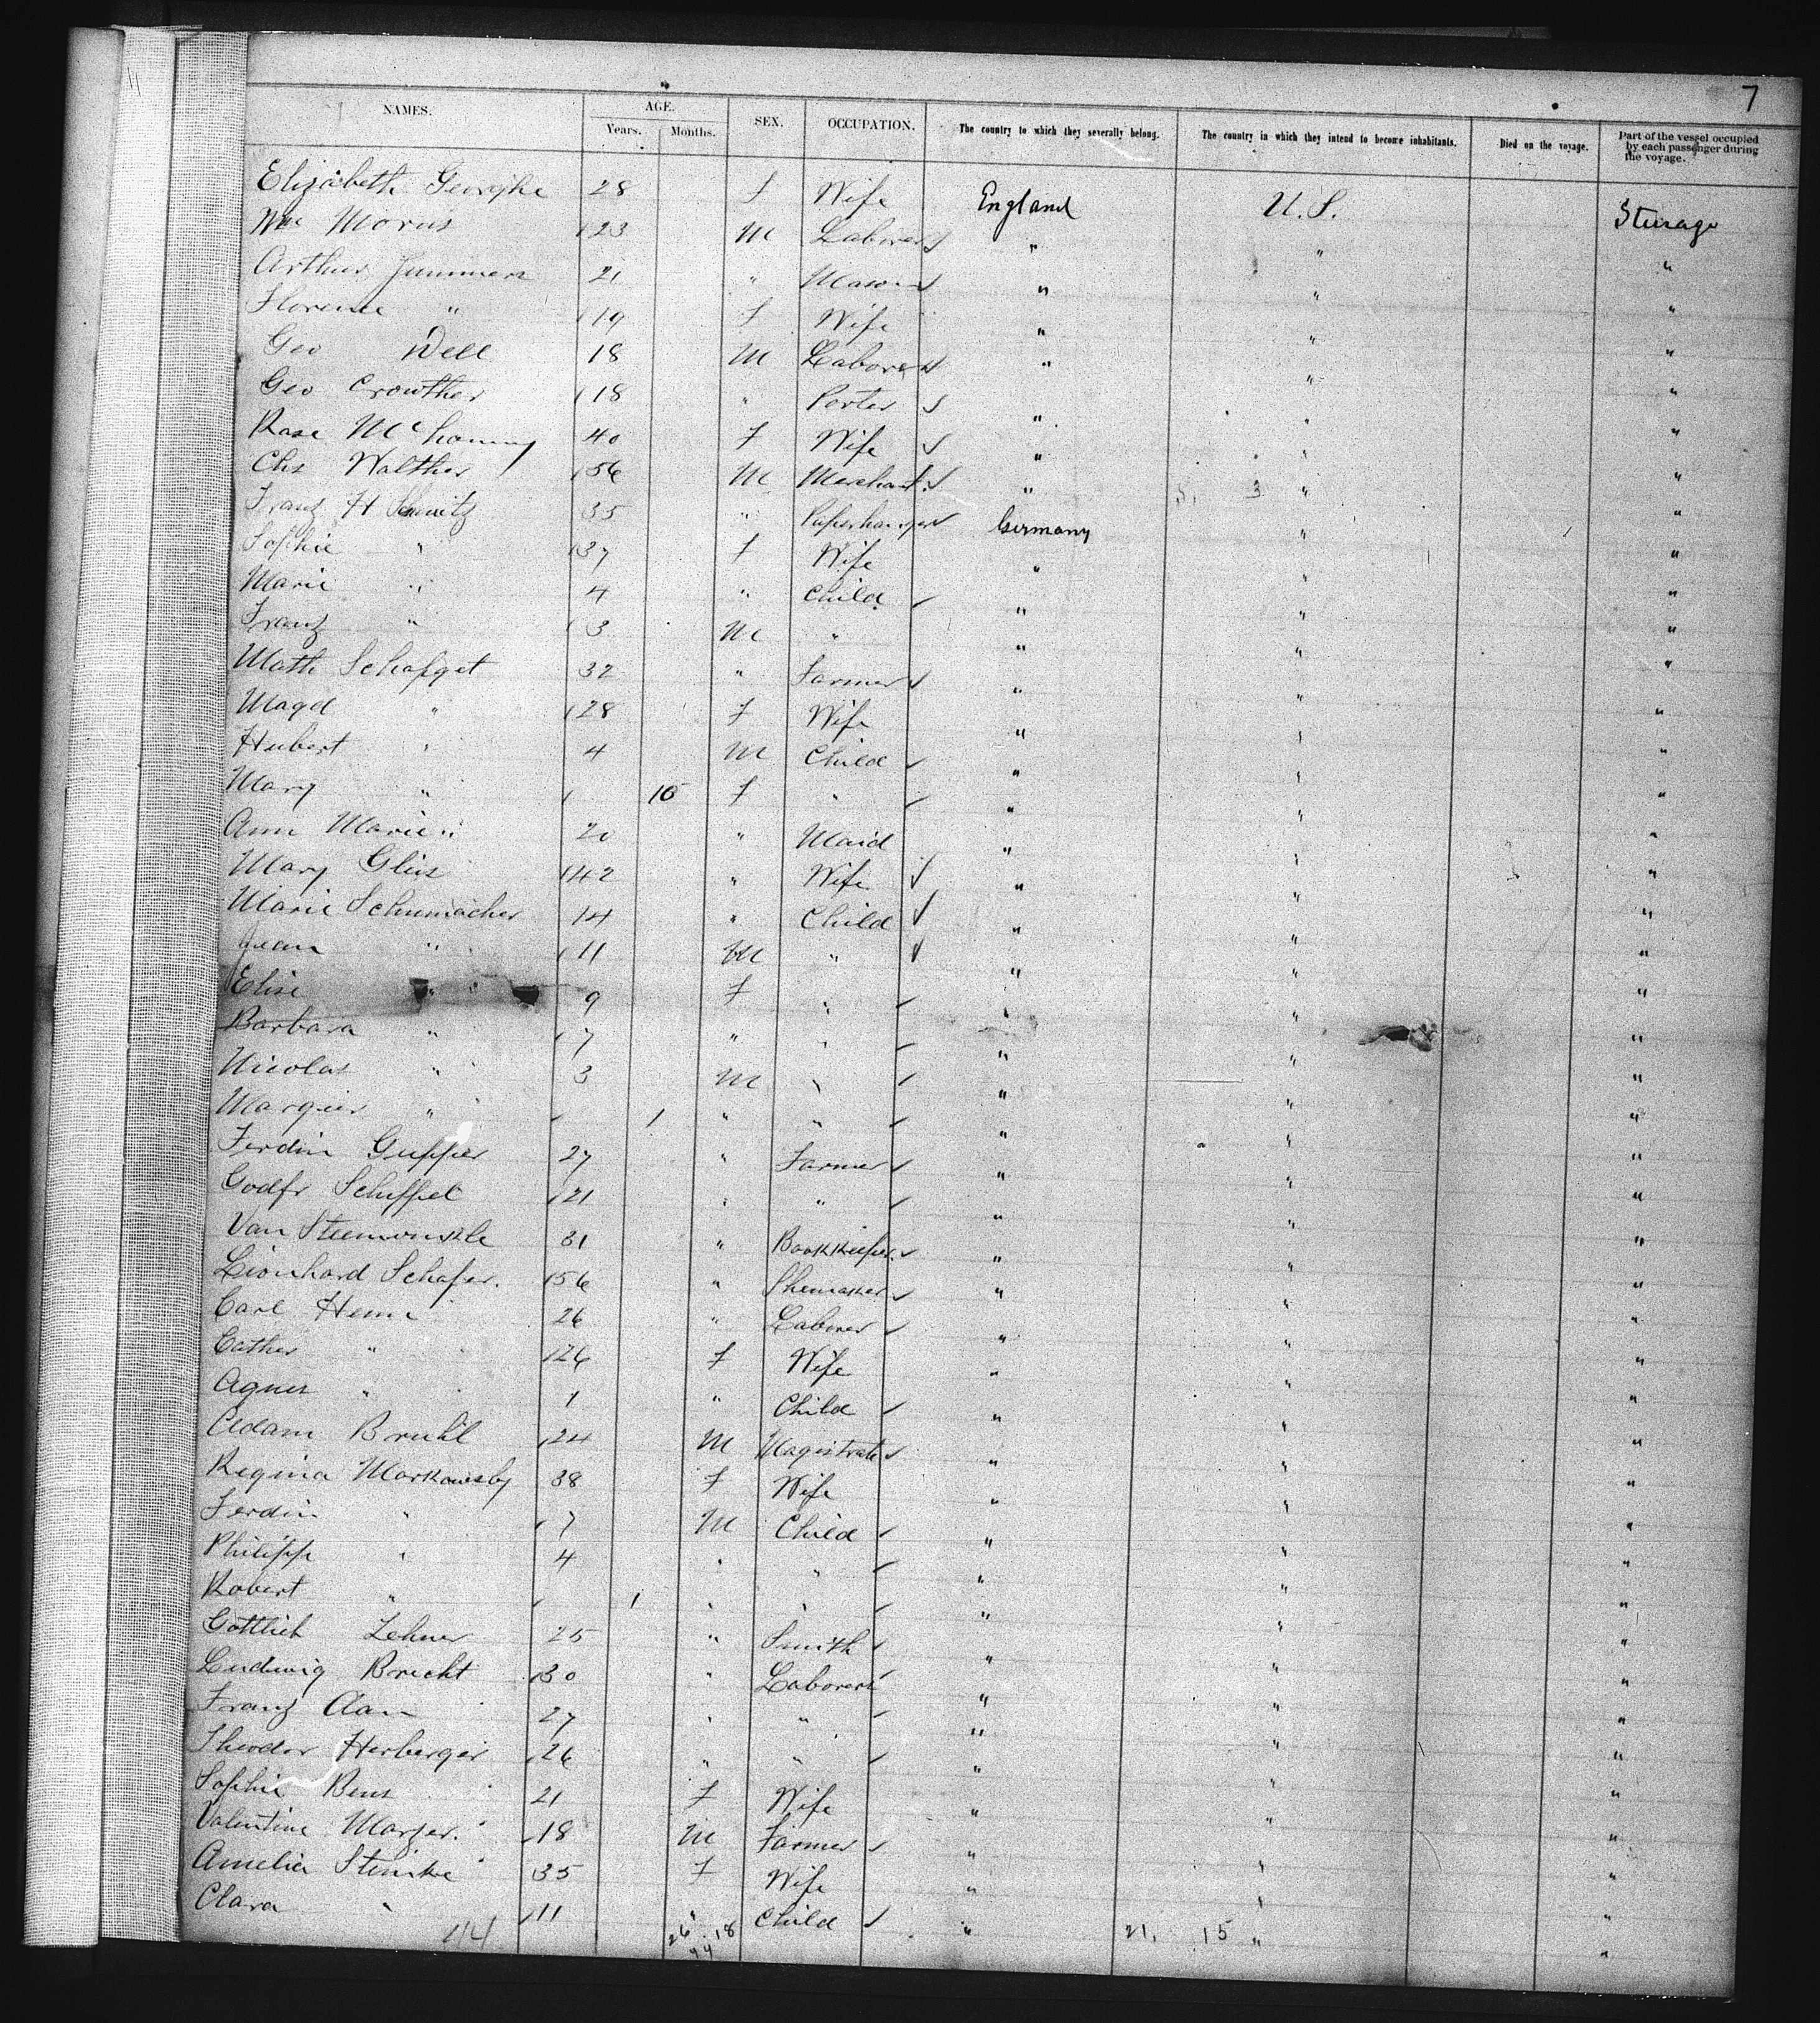 7
NAMES. AGE. SEX. OCCUPATION. The country to which they severally belong. The country in which they intend to become inhabitants. Died on the voyage. Part of the vessel occupied by each passenger during the voyage.
Years. Months.
Elizabeth Georghe 28 F Wife England U.S. Sterage
Wm Morus 23 M Laborer " " "
Arthur Jummers 21 " Mason " " "
Florence " 19 F Wife " " "
Geo Dell 18 M Laborer " " "
Geo Crowther 18 " Porter " " "
Rose 40 F Wife " " "
Chs Walther 56 M Merchant " 3 " "
Franz H 35 " Paperhanger Germany " "
Sophie " 37 F Wife " " "
Marie " 4 " Child " " "
Franz " 3 M " " " "
Math Schafget 32 " Farmer " " "
Magd " 28 F Wife " " "
Hubert " 4 M Child " " "
Mary " 10 F " " " "
Ann Marie " 20 " Maid " " "
Mary Gleis 42 " Wife " " "
Marie Schumacher 14 " Child " " "
Jean " 11 M " " " "
Elise " 9 F " " " "
Barbara " 7 " " " " "
Nicolas " 3 M " " " "
" 1 " " " " "
Ferdin Gupper 27 " Farmer " " "
Godfr Schippel 21 " " " " "
Van 31 " Bookkeeper " " "
Lionhard Schafer. 56 " Shemaker " " "
Carl Henn 26 " Laborer " " "
Cather " 26 F Wife " " "
Agnes " 1 " Child " " "
Adam Bruhl 24 M Magistrate " " "
Regina Markowsky 38 F Wife " " "
Ferdin " 7 M Child " " "
Philipp " 4 " " " " "
Robert " 1 " " " " "
Gottlieb Lehner 25 " Smith " " "
Ludwig Brecht 30 " Laborer " " "
Franz Clan 27 " " " " "
Theodor Herberger 26 " " " " "
Sophie Bens 21 F Wife " " "
Valentine Marzer. 18 M Farmer " " "
Amelia Steinke 35 F Wife " " "
Clara " 11 Child " 21. 15 " "
44 26 18
44